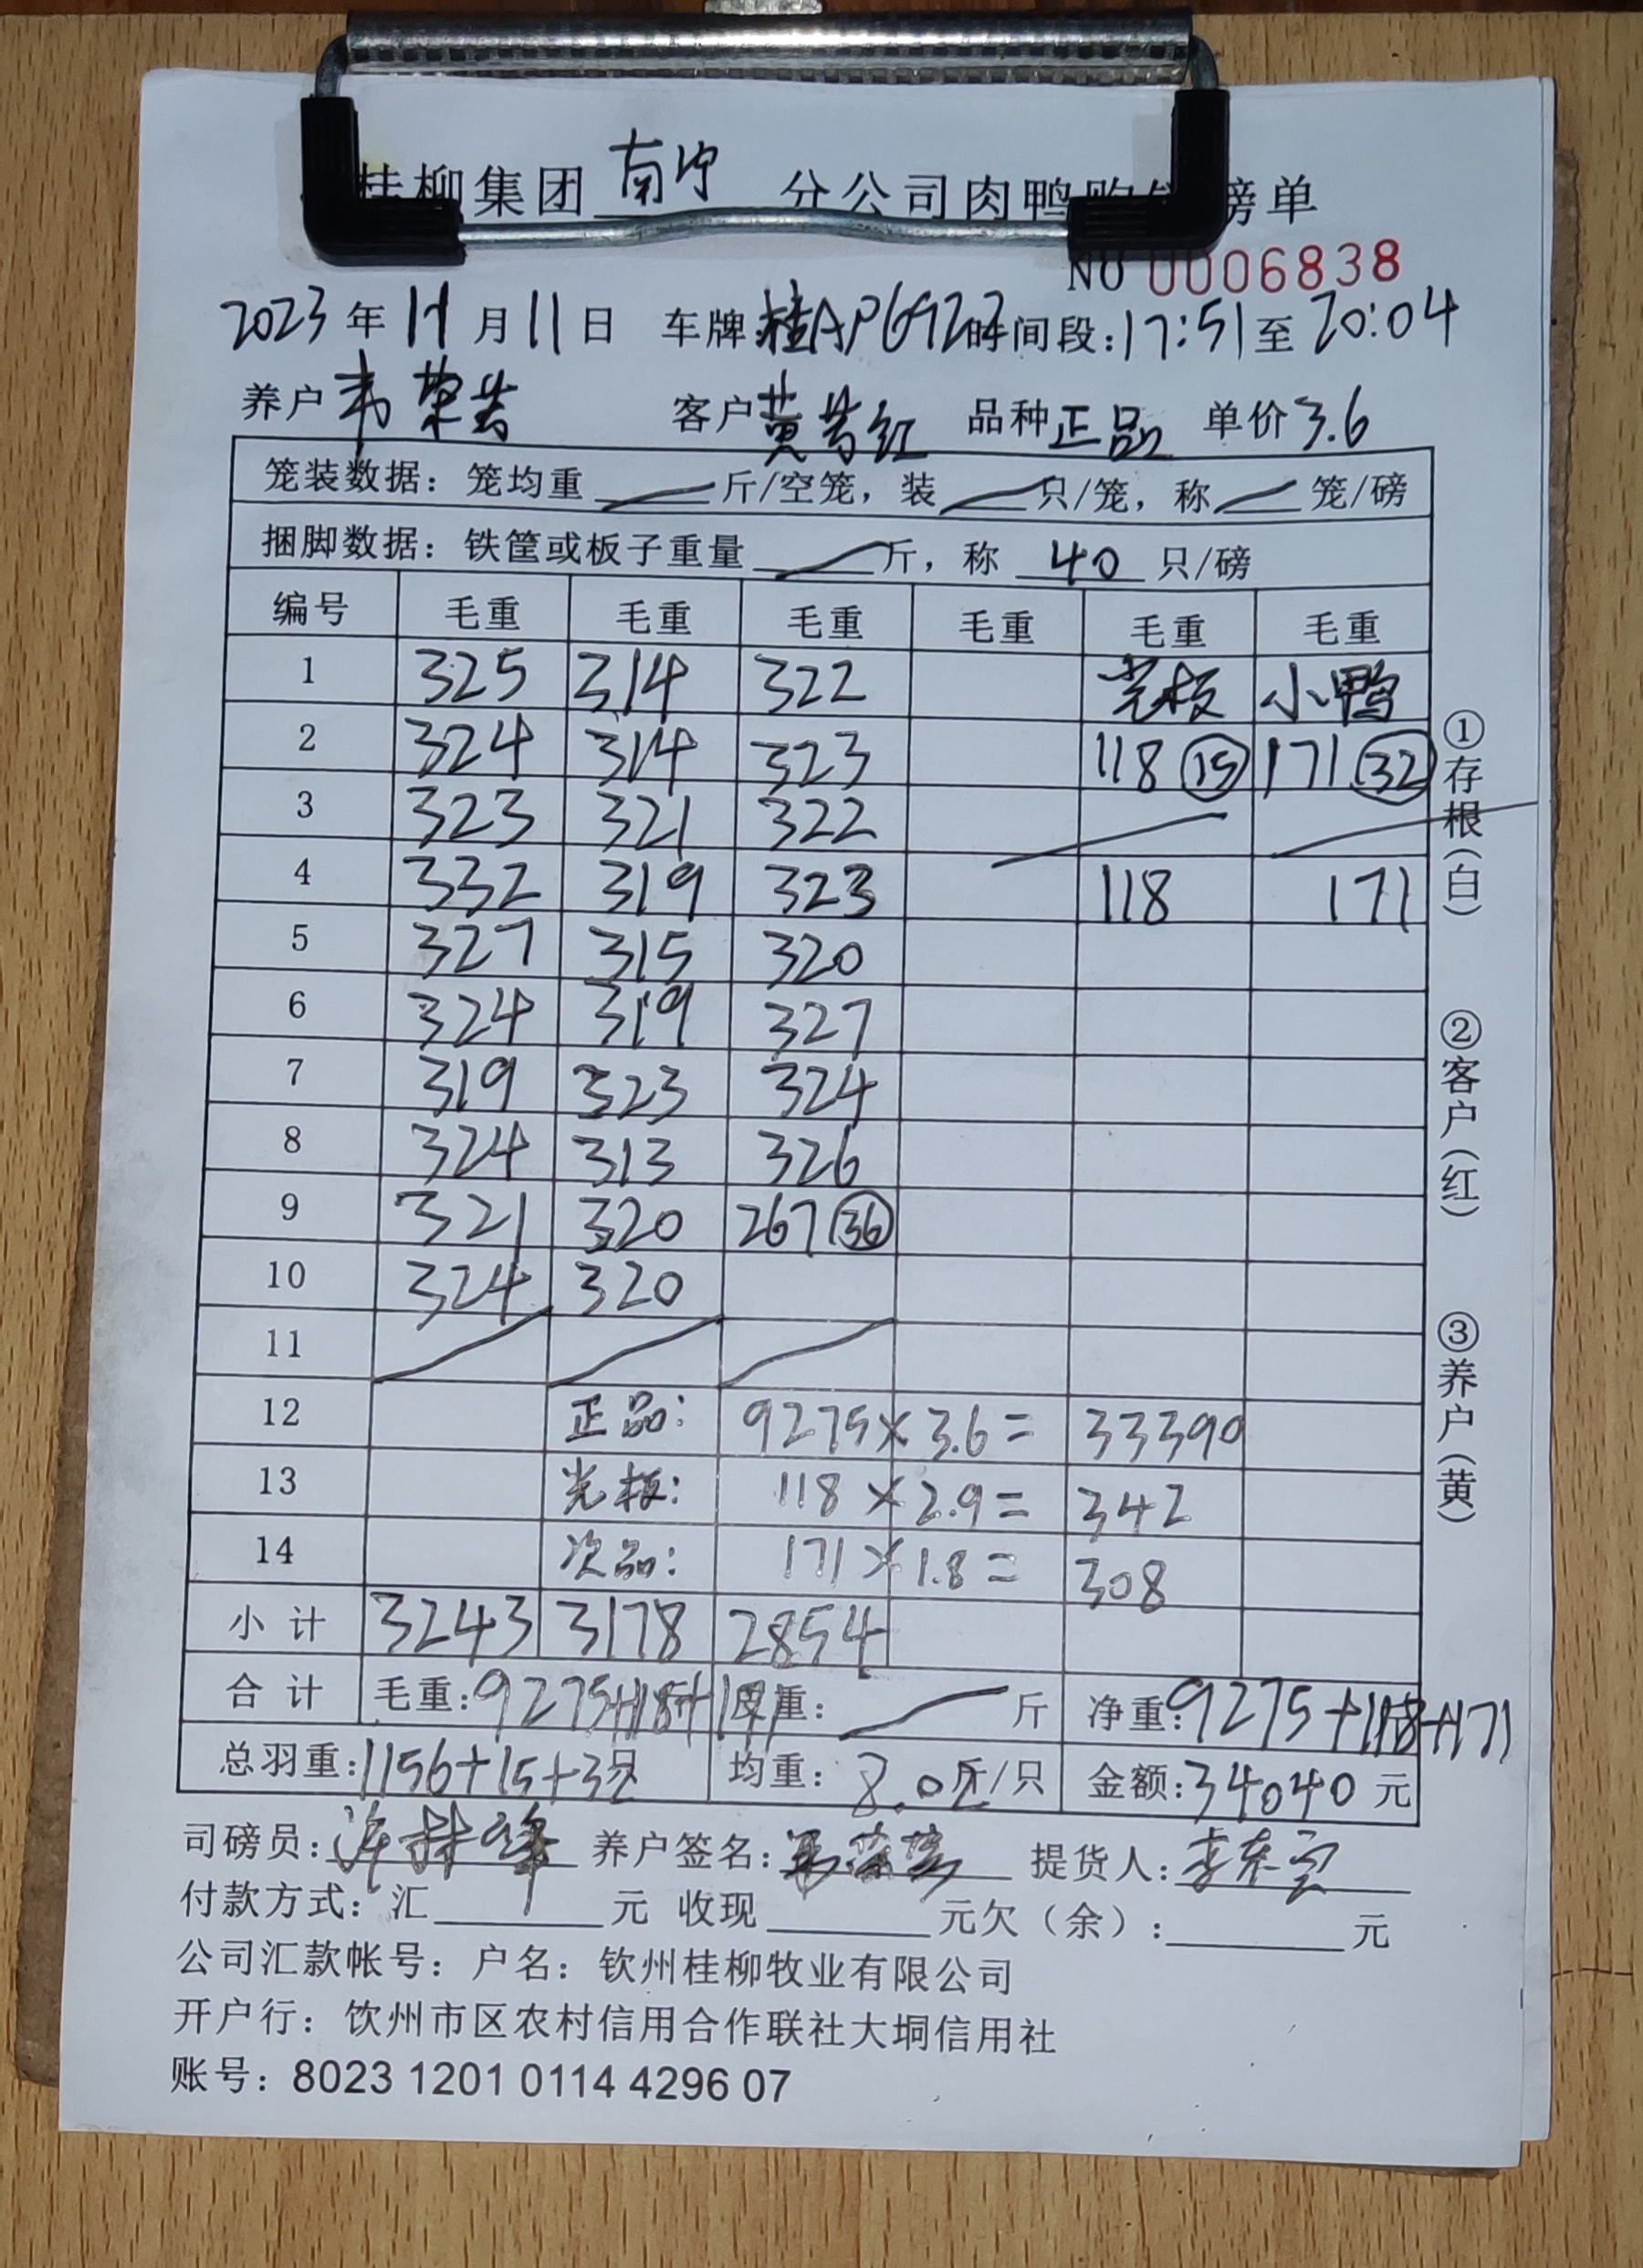 桂柳集团南宁分公司肉鸭购销磅单
NO 0006838
2023年11月11日 车牌:桂AP6922 时间段:17:51至20:04
养户 韦荣芸 客户 黄芳红 品种 正品 单价 3.6
笼装数据：笼均重 斤/空笼，装 只/笼，称 笼/磅
捆脚数据：铁筐或板子重量 斤，称 40 只/磅
编号 毛重 毛重 毛重 毛重 毛重 毛重
1 325 314 322 光板 小鸭
2 324 314 323 118 ⑮ 171 ㉜
3 323 321 322
4 332 319 323 118 171
5 327 315 320
6 324 319 327
7 319 323 324
8 324 313 326
9 321 320 267 ㊱
10 324 320
11
12 正品: 9275×3.6= 33390
13 光板: 118×2.9= 342
14 次品: 171×1.8= 308
小计 3243 3178 2854
合计 毛重:9275+118+171 皮重: 斤 净重:9275+118+171
总羽重:1156+15+32 均重: 8.0斤/只 金额:34040元
司磅员: 养户签名: 提货人:李东宝
付款方式：汇 元 收现 元欠（余）: 元
公司汇款帐号：户名：钦州桂柳牧业有限公司
开户行：钦州市区农村信用合作联社大垌信用社
账号：8023 1201 0114 4296 07
①存根(白)
②客户(红)
③养户(黄)